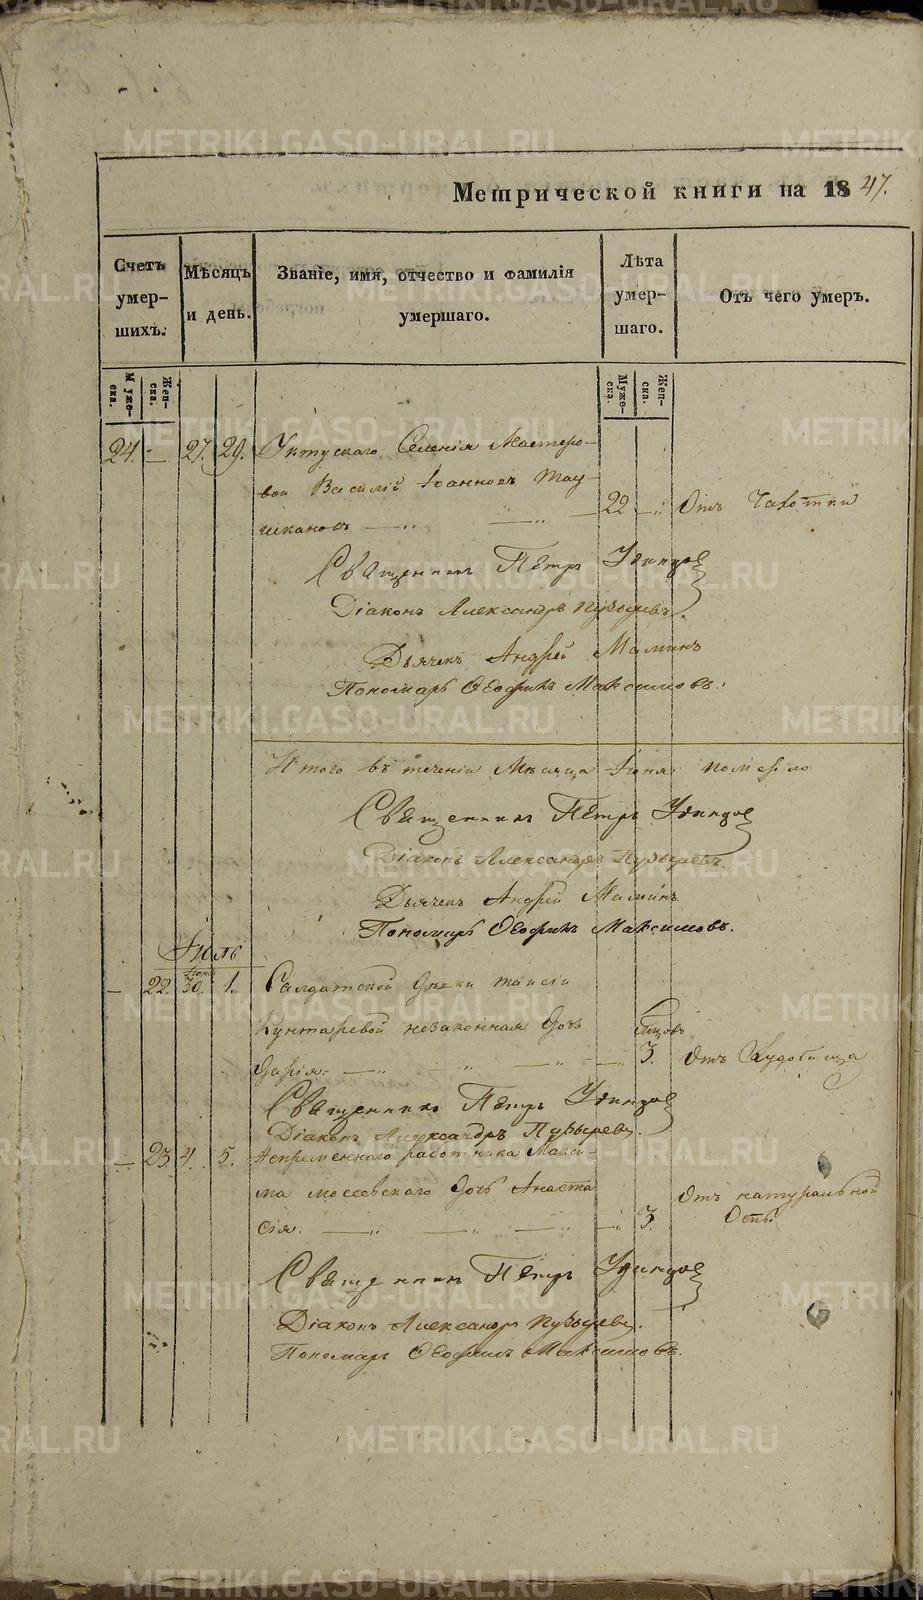 Метрической книги на 1847.
Счетъ умершихъ.
Мѣсяцъ и день.
Званіе, имя, отчество и фамилія умершаго.
Лѣта умершаго.
Отъ чего умеръ.
Мужеска. Женска.
Мужеска. Женска.
24. — 27. 29. Уктускаго Селенія Мастеро-
вой Василій Іоанновъ Тау-
шкановъ — 22 — Отъ Чахотки
Священникъ Петръ Удинцов
Діаконъ Александръ Пузыревъ.
Дьячекъ Андрей Маминъ
Пономарь Ѳеофилъ Максимовъ.
Итого въ теченіи Мѣсяца Іюня померло
Священникъ Петръ Удинцов
Діаконъ Александръ Пузыревъ.
Дьячекъ Андрей Маминъ
Пономарь Ѳеофилъ Максимовъ.
Іюль
Іюн
— 22 30. 1. Салдатской Дѣвки Таисіи
незаконная дочь
Дарія. — 3. Отъ Худобища
Священникъ Петръ Удинцов
Діаконъ Александръ Пузырев.
— 23. 4. 5. Непременнаго работника Макси-
ма дочь Анаста
сія. — 3. Отъ натуральной
Оспы
Священникъ Петръ Удинцов
Діаконъ Александръ Пузырев.
Пономарь Ѳеофилъ Максимовъ.
METRIKI.GASO-URAL.RU